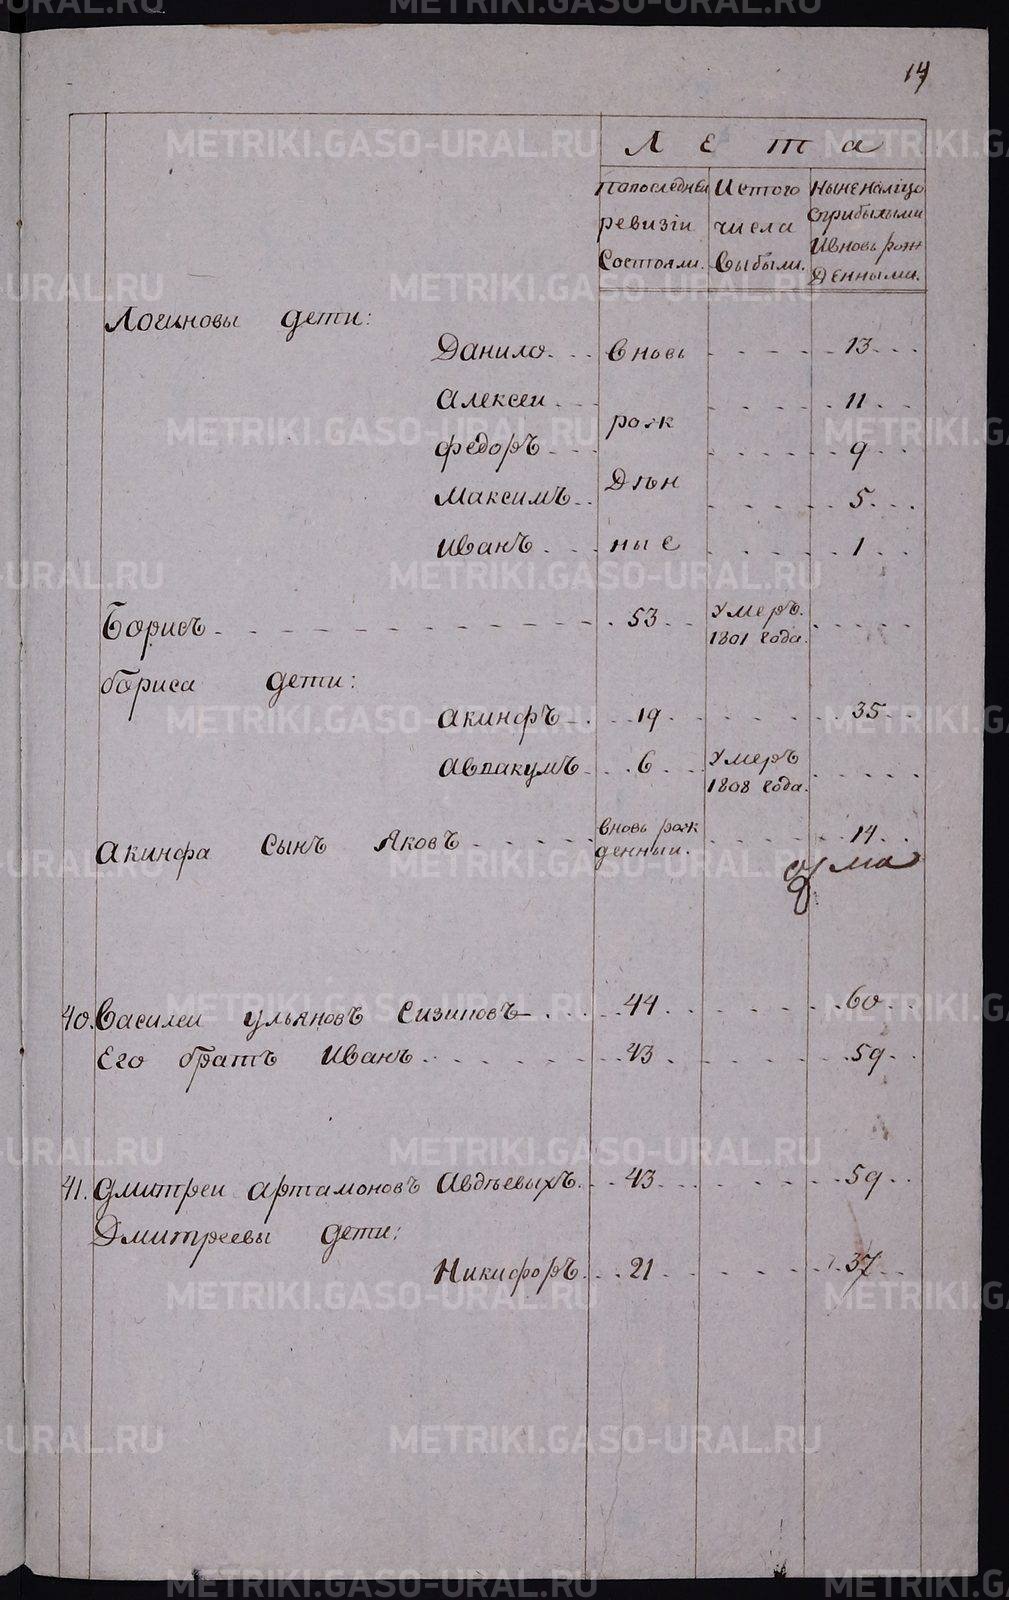 14
Лета
Попоследнеи ревизiи Состояли.
Истого числа Выбыли.
Ныне налiцо Сприбылыми Ивновь рож Денными.
Логиновы дети:
Данило. вновь 13
Алексеи рож 11
Федоръ 9
Максимъ Дѣн 5
Иванъ ные 1
Борисъ 53 Умеръ. 1801 года.
бориса дети:
Акинфъ 19 35
Авдакумъ 6 Умеръ 1808 года.
Акинфа сынъ Яковъ вновь рож денныи. 14
40. Василеи Ульяновъ Сизиковъ 44 60
Его братъ Иванъ 43 59
41. Дмитреи Артамоновъ Авдѣевыхъ 43 59
Дмитреевы дети:
Никифоръ 21 37
METRIKI.GASO-URAL.RU